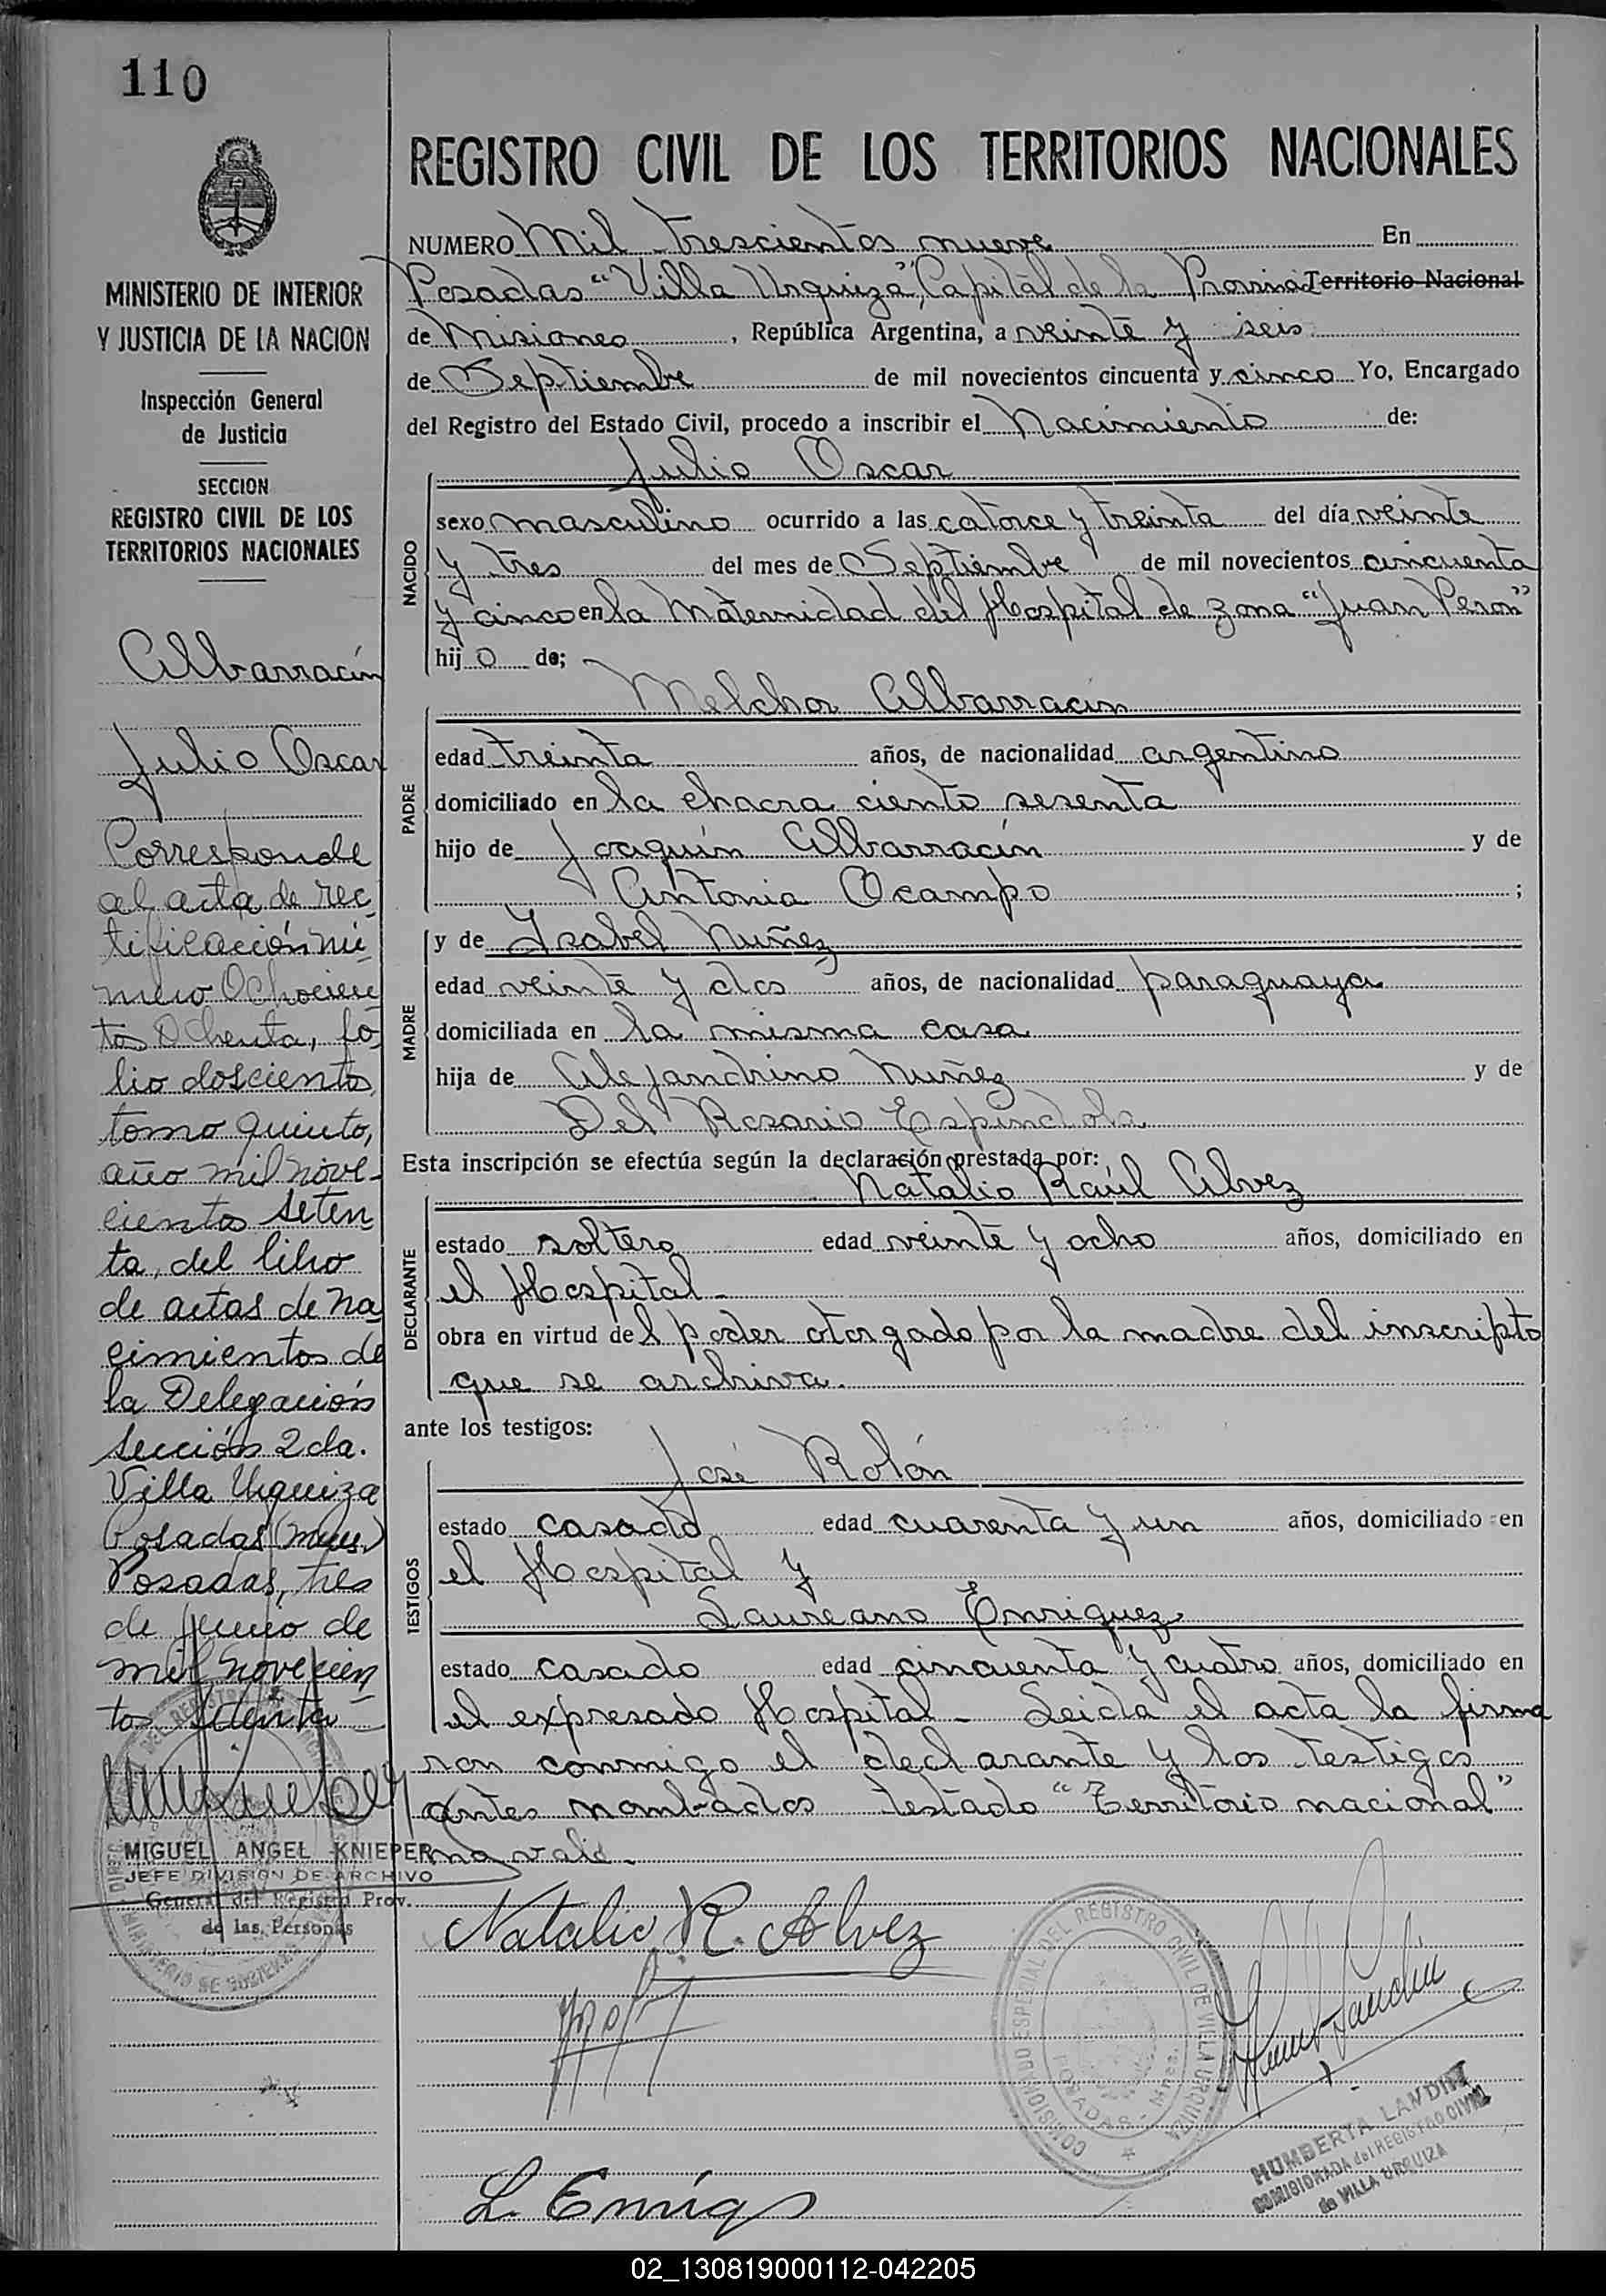 110
MINISTERIO DE INTERIOR
Y JUSTICIA DE LA NACION
Inspección General
de Justicia
SECCION
REGISTRO CIVIL DE LOS
TERRITORIOS NACIONALES
Albarracín
Julio Oscar
Corresponde
al acta de rec
tificación nú
mero Ochocien
tos Ochenta, fo
lio doscientos,
tomo quinto,
año mil nove-
cientos seten
ta, del libro
de actas de na
cimientos de
la Delegación
sección 2da.
Villa Urquiza
Posadas (Mnes.)
Posadas, tres
de junio de
mil novecien
tos setenta
MIGUEL ANGEL KNIEPER
JEFE DIVISION DE ARCHIVO
General del Registro Prov.
de las Personas
REGISTRO CIVIL DE LOS TERRITORIOS NACIONALES
NUMERO Mil trescientos nueve En
Posadas "Villa Urquiza", Capital de la Provincia Territorio Nacional
de Misiones, República Argentina, a veinte y seis
de Septiembre de mil novecientos cincuenta y cinco Yo, Encargado
del Registro del Estado Civil, procedo a inscribir el Nacimiento de:
NACIDO
Julio Oscar
sexo masculino ocurrido a las catorce y treinta del día veinte
y tres del mes de Septiembre de mil novecientos cincuenta
y cinco en la Maternidad del Hospital de zona "Juan Peron"
hijo de;
PADRE
Melchor Albarracin
edad treinta años, de nacionalidad argentino
domiciliado en la chacra ciento sesenta
hijo de Joaquín Albarracín y de
Antonia Ocampo ;
MADRE
y de Isabel Nuñez
edad veinte y dos años, de nacionalidad paraguaya
domiciliada en la misma casa
hija de Alejandrino Nuñez y de
Del Rosario Espindola
Esta inscripción se efectúa según la declaración prestada por:
DECLARANTE
Natalio Raúl Alvez
estado soltero edad veinte y ocho años, domiciliado en
el Hospital -
obra en virtud del poder otorgado por la madre del inscripto
que se archiva.
ante los testigos:
TESTIGOS
José Rolón
estado casado edad cuarenta y un años, domiciliado en
el Hospital y
Laureano Enriquez
estado casado edad cincuenta y cuatro años, domiciliado en
el expresado Hospital - Leida el acta la firma
ron conmigo el declarante y los testigos
antes nombrados testado "Territorio nacional"
no vale -
Natalio R. Alvez
COMISIONADO ESPECIAL DEL REGISTRO CIVIL DE VILLA URQUIZA
POSADAS - Mnes.
HUMBERTA LANDINI
COMISIONADA del REGISTRO CIVIL
de VILLA URQUIZA
02_130819000112-042205